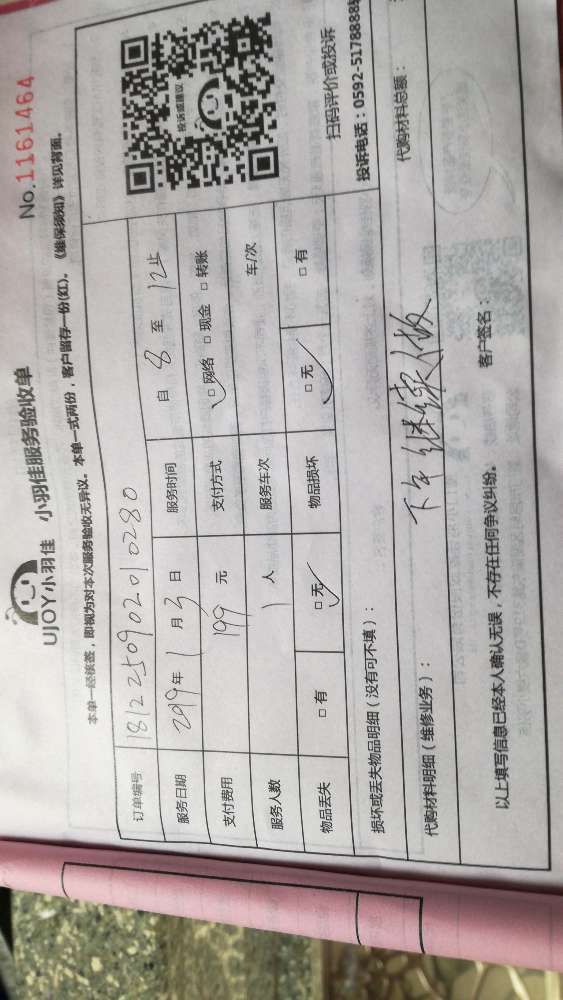 UJOY小羽佳 小羽佳服务验收单
No.1161464
本单一经核签，即视为对本次服务验收无异议。本单一式两份，客户留存一份(红)。《维保须知》详见背面。
订单编号 181225090201 0280
服务日期 2019年 1 月 3 日 服务时间 自 8 至 12 止
支付费用 199 元 支付方式 □网络 □现金 □转账
服务人数 1 人 服务车次 车/次
物品丢失 □有 □无 物品损坏 □无 □有
投诉或建议
扫码评价或投诉
投诉电话：0592-5178888
损坏或丢失物品明细（没有可不填）：
代购材料明细（维修业务）： 代购材料总额：
下午继续
以上填写信息已经本人确认无误，不存在任何争议纠纷。 客户签名：